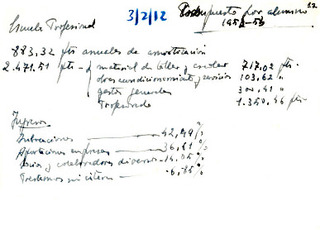 82
3/2/12
Presupuesto por alumno
1952-53
Escuela Profesional
883,32 pts anuales de amortización
2.471,51 pts. material de taller y escolar 717,02 pts.
acondicionamiento y servicios 103,62
gastos generales 300,41
Profesorado 1.350,46 pts
Ingresos
Subvenciones 42,49 %
Aportaciones empresas 36,61 %
y colaboradores diversos 14,05 %
Préstamos sin interés 6,85 %